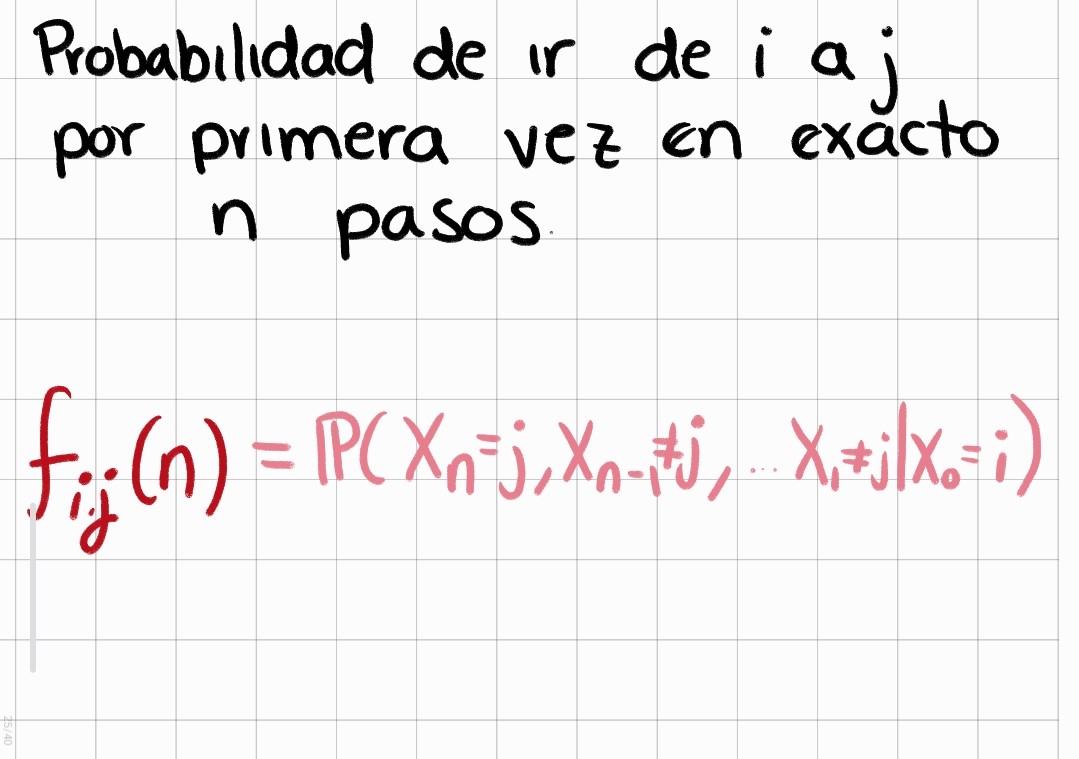 Probabilidad de ir de i a j
por primera vez en exacto
n pasos.
f_{ij}(n) = ℙ(X_n=j, X_{n-1}≠j, ... X_1≠j|X_0=i)
25/40